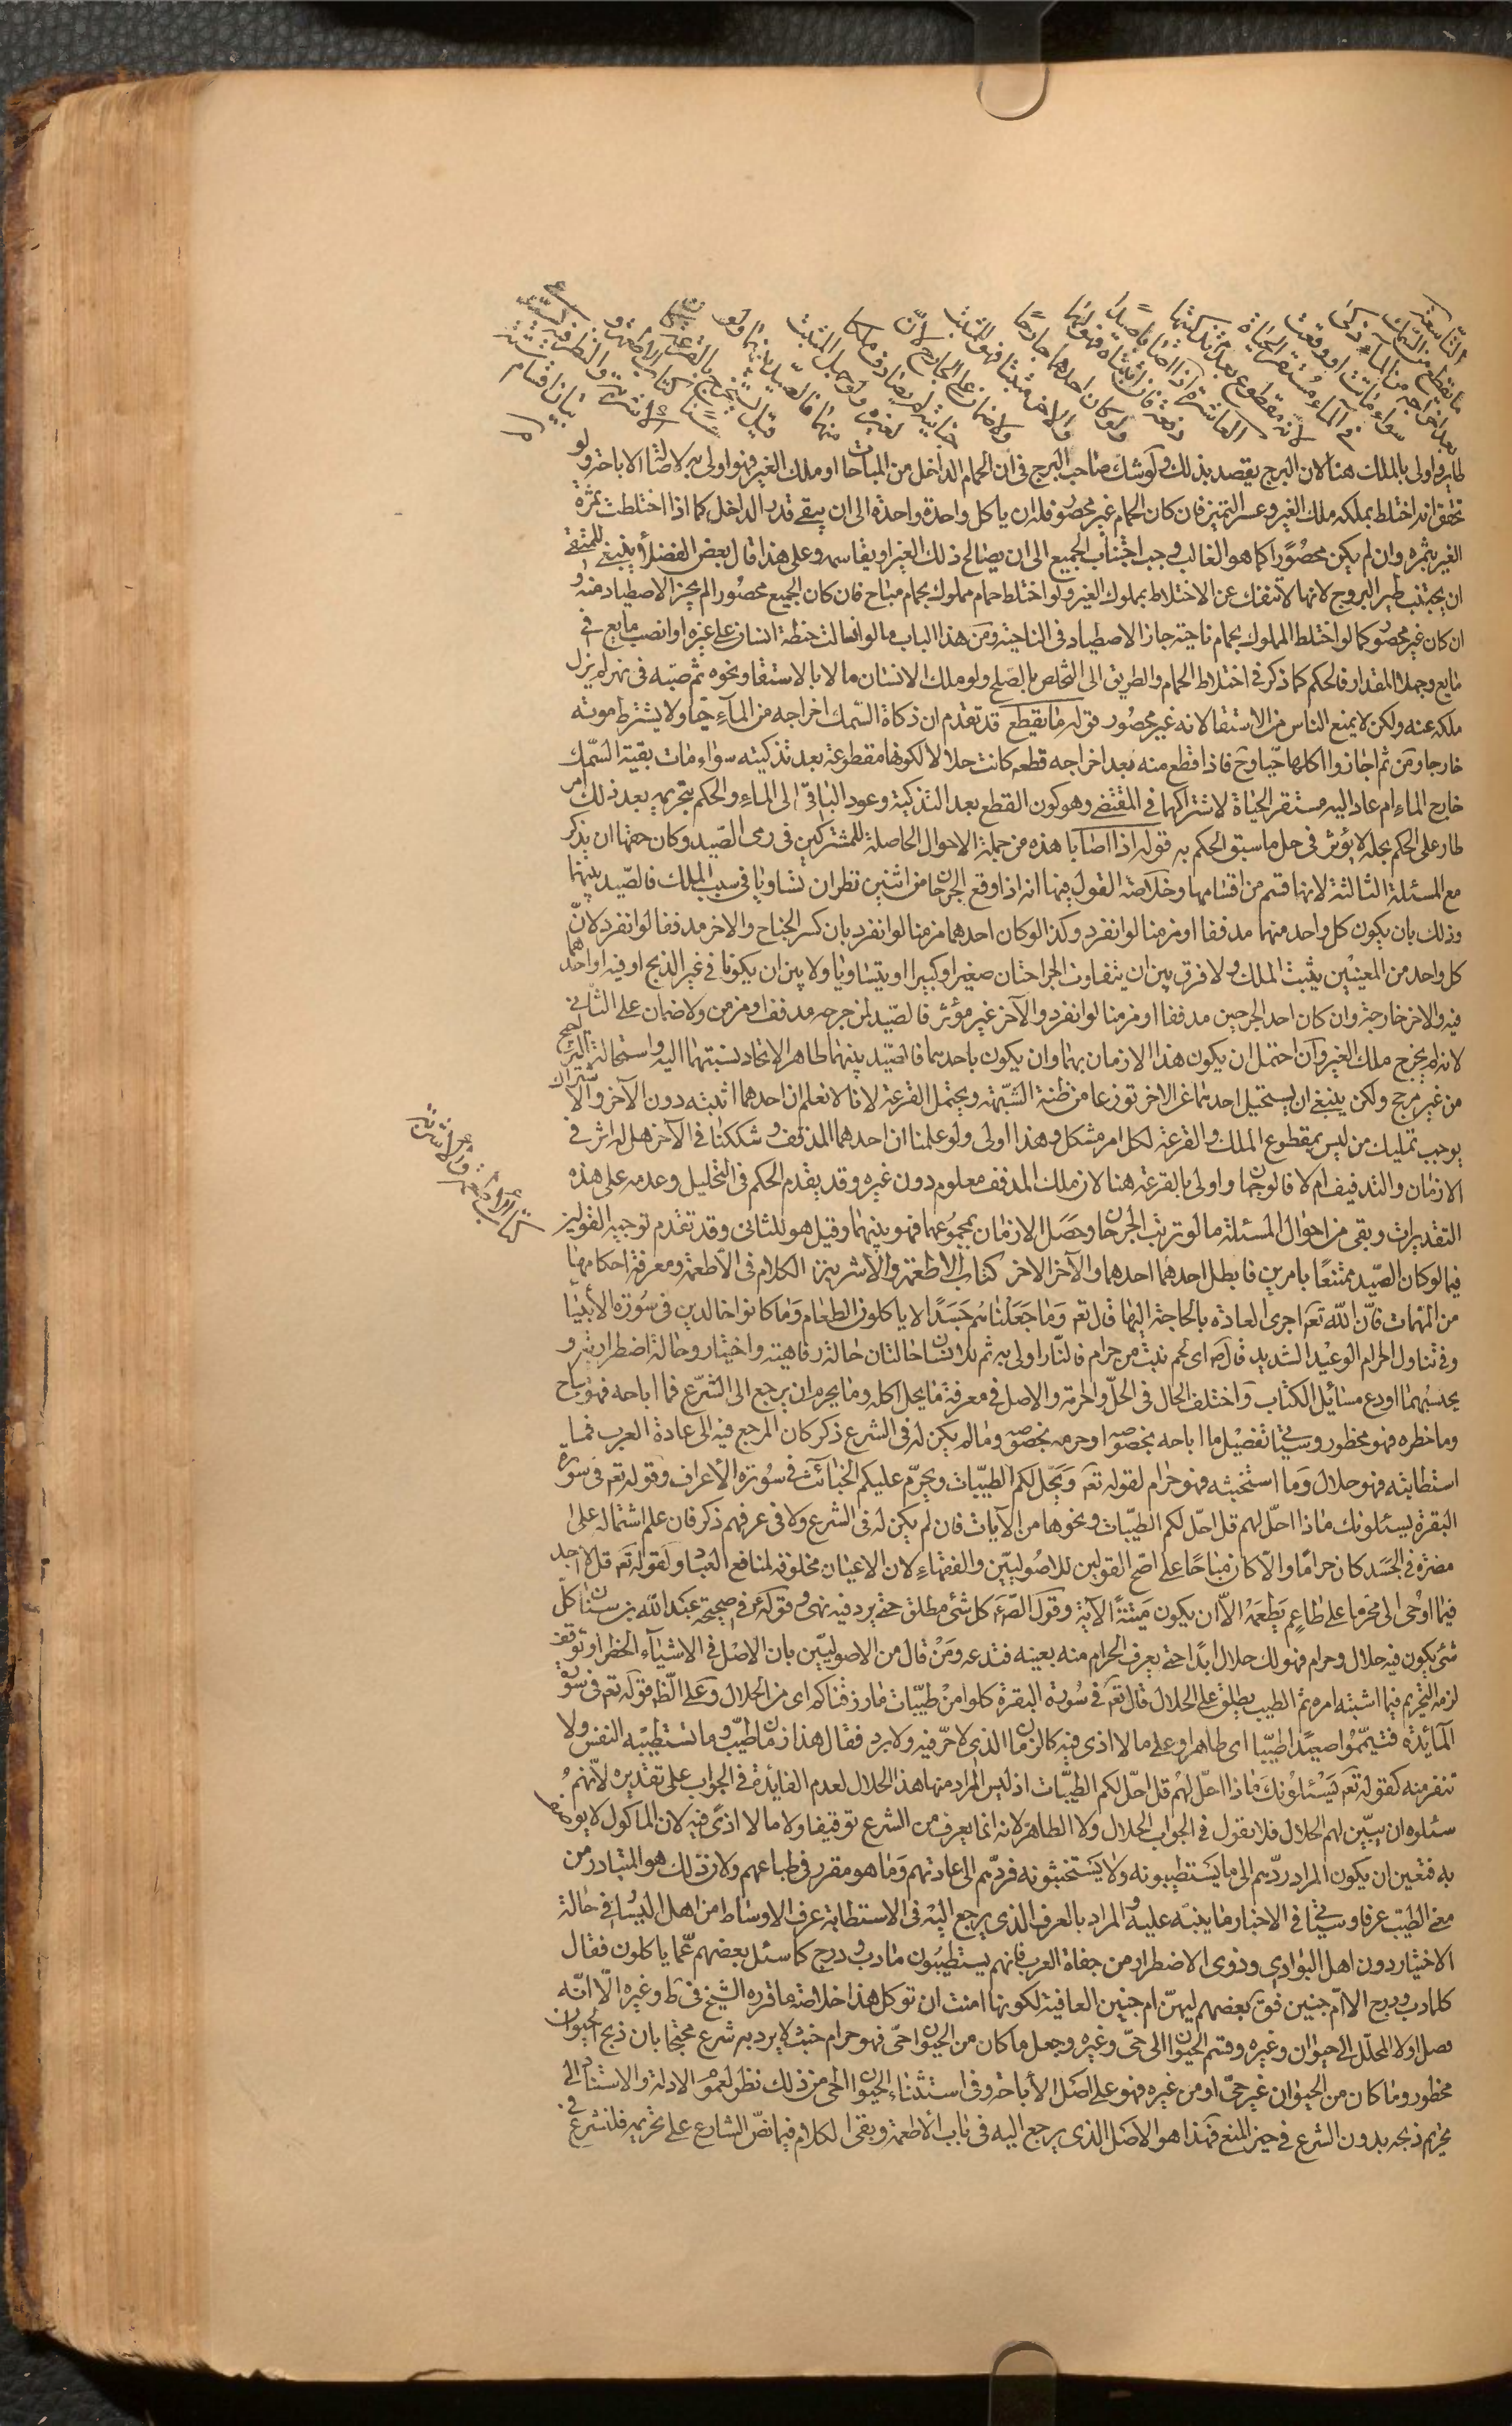 التاسعة
ما يقطع من السمك
بعد اخراجه من الماء ذكى
سواء ماتت او وقعت
فى الماء مستقر الحياة
لانه مقطوع بعد تذكيتها
العاشرة اذا اصابا صيدا
دفعة فان اثبتاه فهو لهما
ولو كان احدهما جارحا
والاخر مثبتا فهو للمثبت
ولا ضمان على الجارح لانّ
جنايته لم يصادف ملكا
لغيره ولو جهل المثبت
منهما فالصيد بينهما ولو
قيل يستخرج بالقرعة كان
حسنا كتاب الاطعمة و
الاشربة والنظر فيه يستدعى
بيان اقسام ستة
طايره اولى بالملك هنا لان البرج يقصد بذلك ولو شك صاحب البرج فى ان الحمام الداخل من المباحات او ملك الغير فهو اولى به لاصالة الاباحة ولو
تحقق انه اختلط بملكه ملك الغير وعسر التميز فان كان الحمام غير محصور فله ان ياكل واحدة واحدة الى ان يبقى قدر الداخل كما اذا اختلطت ثمرة
الغير بثمره وان لم يكن محصورا كما هو الغالب وجب اجتناب الجميع الى ان يصالح ذلك الغير او يقاسمه وعلى هذا قال بعض الفضلاء ينبغى للمتقى
ان يجتنب طير البروج لانها لا تنفك عن الاختلاط بمملوك الغير ولو اختلط حمام مملوك بحمام مباح فان كان الجميع محصورا لم يجز الاصطياد منه و
ان كان غير محصور كما لو اختلط المملوك بحمام ناحية جاز الاصطياد فى الناحية ومن هذا الباب ما لو انهالت حنطة انسان على غيره او انصب مايع فى
مايع وجهلا المقدار فالحكم كما ذكر فى اختلاط الحمام والطريق الى التخلص بالصلح ولو ملك الانسان ما لا بالاستقا ونحوه ثم صبه فى نهر لم يزل
ملكه عنه ولكن لا يمنع الناس من الاستقا لانه غير محصور قوله ما يقطع قد تقدم ان ذكاة السمك اخراجه من الماء حيا ولا يشترط موته
خارجا ومن ثم اجازوا اكلها حيا وح فاذا قطع منه بعد اخراجه قطعه كانت حلالا لكونها مقطوعة بعد تذكيته سواء مات بقية السمك
خارج الماء ام عاد اليه مستقر الحياة لاشتراكهما فى المقتضى وهو كون القطع بعد التذكية وعود الباقى الى الماء والحكم بتحريمه بعد ذلك امر
طار على الحكم بحله لا يؤثر فى حل ما سبق الحكم به قوله اذا اصابا هذه من جملة الاحوال الحاصلة للمشتركين فى رمى الصيد وكان حقها ان يذكر
مع المسئلة الثالثة لانها قسم من اقسامها وخلاصة القول فيها انه اذا وقع الجرحان من اثنين نظر ان تساويا فى سبب الملك فالصيد بينهما
وذلك بان يكون كل واحد منهما مدففا او مزمنا لو انفرد وكذا لو كان احدهما مزمنا لو انفرد بان كسر الجناح والاخر مدففا لو انفرد لانّ
كل واحد من المعنيين يثبت الملك ولا فرق بين ان يتفاوت الجراحتان صغيرا وكبيرا او يتساويا ولا بين ان يكونا فى غير الذبح او فيه او احدهما
فيه والاخر خارجه وان كان احد الجرحين مدففا او مزمنا لو انفرد والآخر غير مؤثر فالصيد لمن جرحه مدفف او مزمن ولا ضمان على الثانى
لانه لم يجرح ملك الغير وان احتمل ان يكون هذا الازمان بهما وان يكون باحدهما فالصيد بينهما ظاهر الاتحاد نسبتهما اليه واستحالة الترجيح
من غير مرجح ولكن ينبغى ان يستحيل احدهما عن الاخر تورعا من مظنة الشبهة ويحتمل القرعة لانا لا نعلم ان احدهما اثبته دون الآخر والاشتراك
يوجب تمليك من ليس بمقطوع الملك والقرعة لكل امر مشكل وهذا اولى ولو علمنا ان احدهما المدفف وشككنا فى الآخر هل له اثر فى
الازمان والتدفيف ام لا فالوجهان واولى بالقرعة هنا لان ملك المدفف معلوم دون غيره وقد يقدم الحكم فى التحليل وعدمه على هذه
التقديرات وبقى من احوال المسئلة ما لو ترتب الجرحان وحصل الازمان بمجموعهما فهو بينهما وقيل هو للثانى وقد تقدم توجيه القولين
فيما لو كان الصيد ممتنعا بامرين فابطل احدهما احدهما والآخر الاخر كتاب الاطعمة والاشربة الكلام فى الأطعمة ومعرفة احكامها
من المهمات فانّ اللّه تعَ اجرى العادة بالحاجة اليها قال تعَ وَما جَعَلْناهُم جَسَدًا لا ياكلون الطعام وَما كانوا خالدين فى سُورة الأنبيا
وفى تناول الحرام الوعيد الشديد قال صَ اى لحم نبت من حرام فالنار اولى به ثم للانسان حالتان حالة رفاهية واختيار وحالة اضطرارية و
بحسبهما اودع مسائل الكتاب واختلف الحال فى الحلّ والحرمة والاصل فى معرفة ما يحل اكله وما يحرم ان يرجع الى الشرع فما اباحه فهو مباح
وما حظره فهو محظور وسيأتى تفصيل ما اباحه بخصوصه او حرمه بخصوصه وما لم يكن له فى الشرع ذكر كان المرجع فيه الى عادة العرب فما
استطابته فهو حلال وما استخبثه فهو حرام لقوله تعَ وَيحلّ لكم الطيبات ويحرّم عليكم الخبائث فى سُورة الأعراف وقوله تعَ فى سورة
البقرة يسئلونك ماذا احلّ لهم قل احلّ لكم الطيّبات ونحوها من الآيات فان لم يكن له فى الشرع ولا فى عرفهم ذكر فان علم اشتماله على
مضرة فى الجسد كان حرامًا والّا كان مباحًا على اصح القولين للاصوليين والفقهاء لان الاعيان مخلوقة لمنافع العباد ولقوله تعَ قل لا اجد
فيما اوحى الى محرّما على طاعمٍ يَطعَمهُ الاّ ان يكون ميتتةً الآية وقول الصَّ عَ كل شئ مطلق حتى يرد فيه نهى وقوله ع فى صحيحة عبد اللّه بن سنان كلّ
شئ يكون فيه حلال وحرام فهو لك حلال ابدًا حتى يعرف الحرام منه بعينه فتدعه ومَنْ قال من الاصوليين بان الاصل فى الاشياء الحظر او توقف
لزمه التحريم فيما اشتبه امره ثم الطيب يطلق على الحلال قال تعَ فى سُورة البقرة كلوا مِنْ طيّبات ما رزقناكم اى من الحلال وعلى الطاهر قوله تعَ فى سورة
المائدة فتيمّموا صعيدًا طيّبا اى طاهرا وعلى ما لا اذى فيه كالزمان الذى لا حرّ فيه ولا برد فقال هذا زمان طيّب وما تستطيبه النفس ولا
تنفر منه كقوله تعَ يَسْئلونكَ ماذا احلّ لهُمْ قل احلّ لكم الطيبات اذ ليس المراد منها هذا الحلال لعدم الفايدة فى الجواب على تقديره لأنهم
سئلوه ان يبيّن لهم الحلال فلا نقول فى الجواب الحلال ولا الطاهر لانه انما يعرف من الشرع توقيفا ولا ما لا اذًى فيه لان الماكول لا يوصف
به فتعين ان يكون المراد ردّهم الى ما يَستطيبونه ولا يَستخبثونه فردّهم الى عادتهم وما هو مقرر فى طباعهم ولان ذلك هو المتبادر من
معنى الطيّب عرفا وسيأتى فى الاخبار ما ينبّه عليه والمراد بالعرف الذى يرجع اليه فى الاستطابة عرف الاوساط من اهل اليسار فى حالة
الاختيار دون اهل البوادى وذوى الاضطرار من جفاة العرب فانهم يستطيبون ما دب ودرج كما سئل بعضهم عمّا ياكلون فقال
كلما دب ودرج الا ام جنين فقى بعضهم ليهنّ ام جنين العافية لكونها امنت ان توكل هذا خلاصة ما قرره الشيخ فى ط وغيره الّا انّه
فصل اولا المحلّل الى حيوان وغيره وقسم الحيوان الى حىّ وغيره وجعل ما كان من الحيوان حىّ فهو حرام حتى يرد به شرع محتجا بان ذبح الحيوان
محظور وما كان من الحيوان غير حىّ او من غيره فهو على اصل الأباحة وفى استثناء الحيوان الحى من ذلك نظر لعموم الادلة والاستناد الى
تحريم ذبحه بدون الشرع فى حيز المنع فهذا هو الاصل الذى يرجع اليه فى باب الأطعمة وبقى الكلام فيما نصّ الشارع على تحريمه فلنشرع فى
كتاب الأطعمة والأشربة